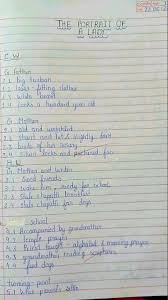 THE PORTRAIT OF
A LADY
C.W
G. Father
1.1 big turban
1.2 loose-fitting clothes
1.3 white beard
1.4 looks a hundred years old
G. Mother
2.1 old and wrinkled
2.2 short and fat & slightly bent
2.3 beads of her rosary
2.4 silver locks and puckered face
G. Mother and writer
3.1 Good friends
3.2 wake him, ready for school
3.3 stale chapatti breakfast
3.4 stale chapattis for dogs
School
4.1 Accompanied by grandmother
4.2 temple, prayers
4.3 Priest taught alphabet & morning prayer
4.4 grandmother reading scriptures
4.5 feed dogs
turning-point
5.1 When parents